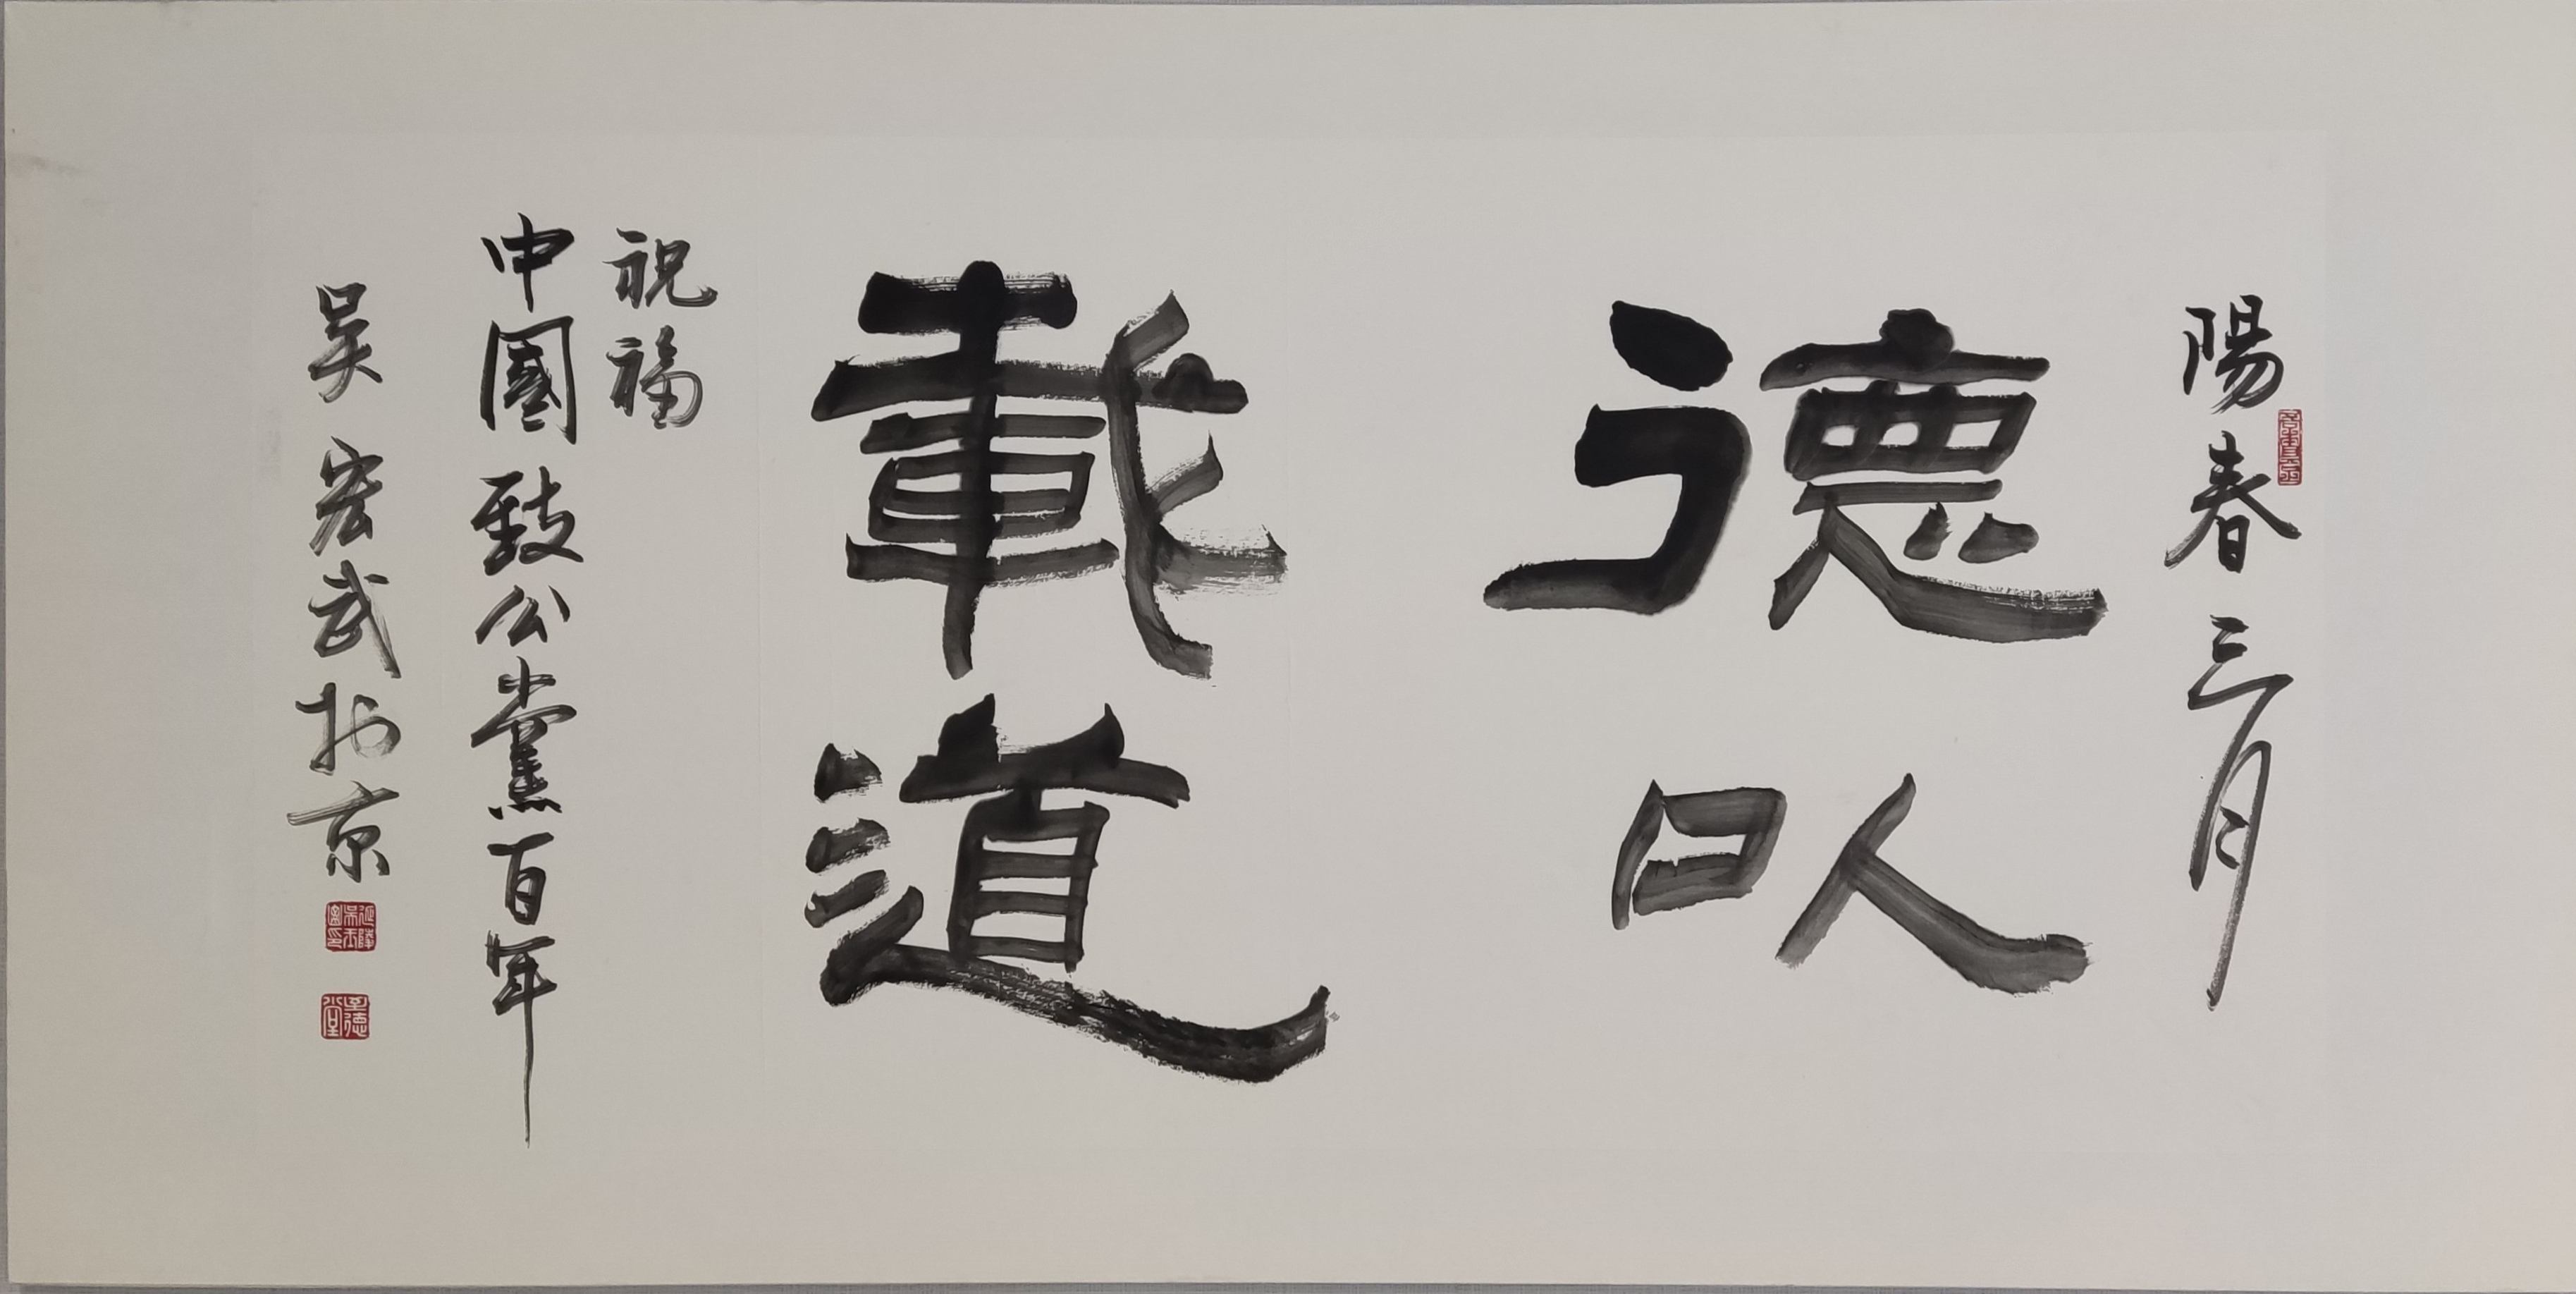 陽春三月
德以
載道
祝福
中國致公黨百年
吴宏武於京